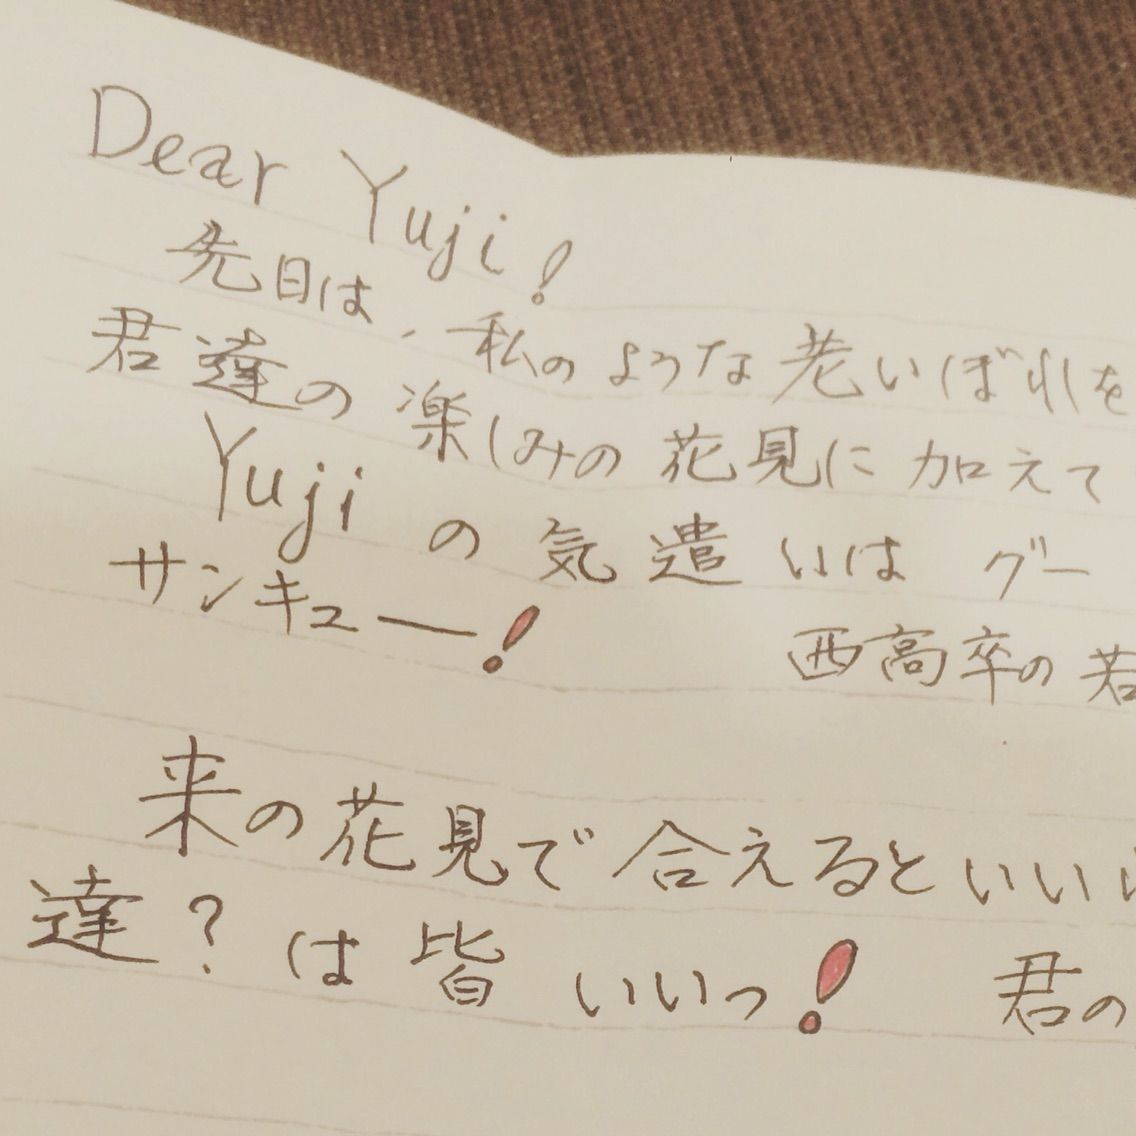 Dear Yuji!
先日は、私のような老いぼれを
君達の楽しみの花見に加えて
Yujiの気遣いは グー
サンキュー!
西高卒の若
来の花見で合えるといい
達?は皆いいっ! 君の